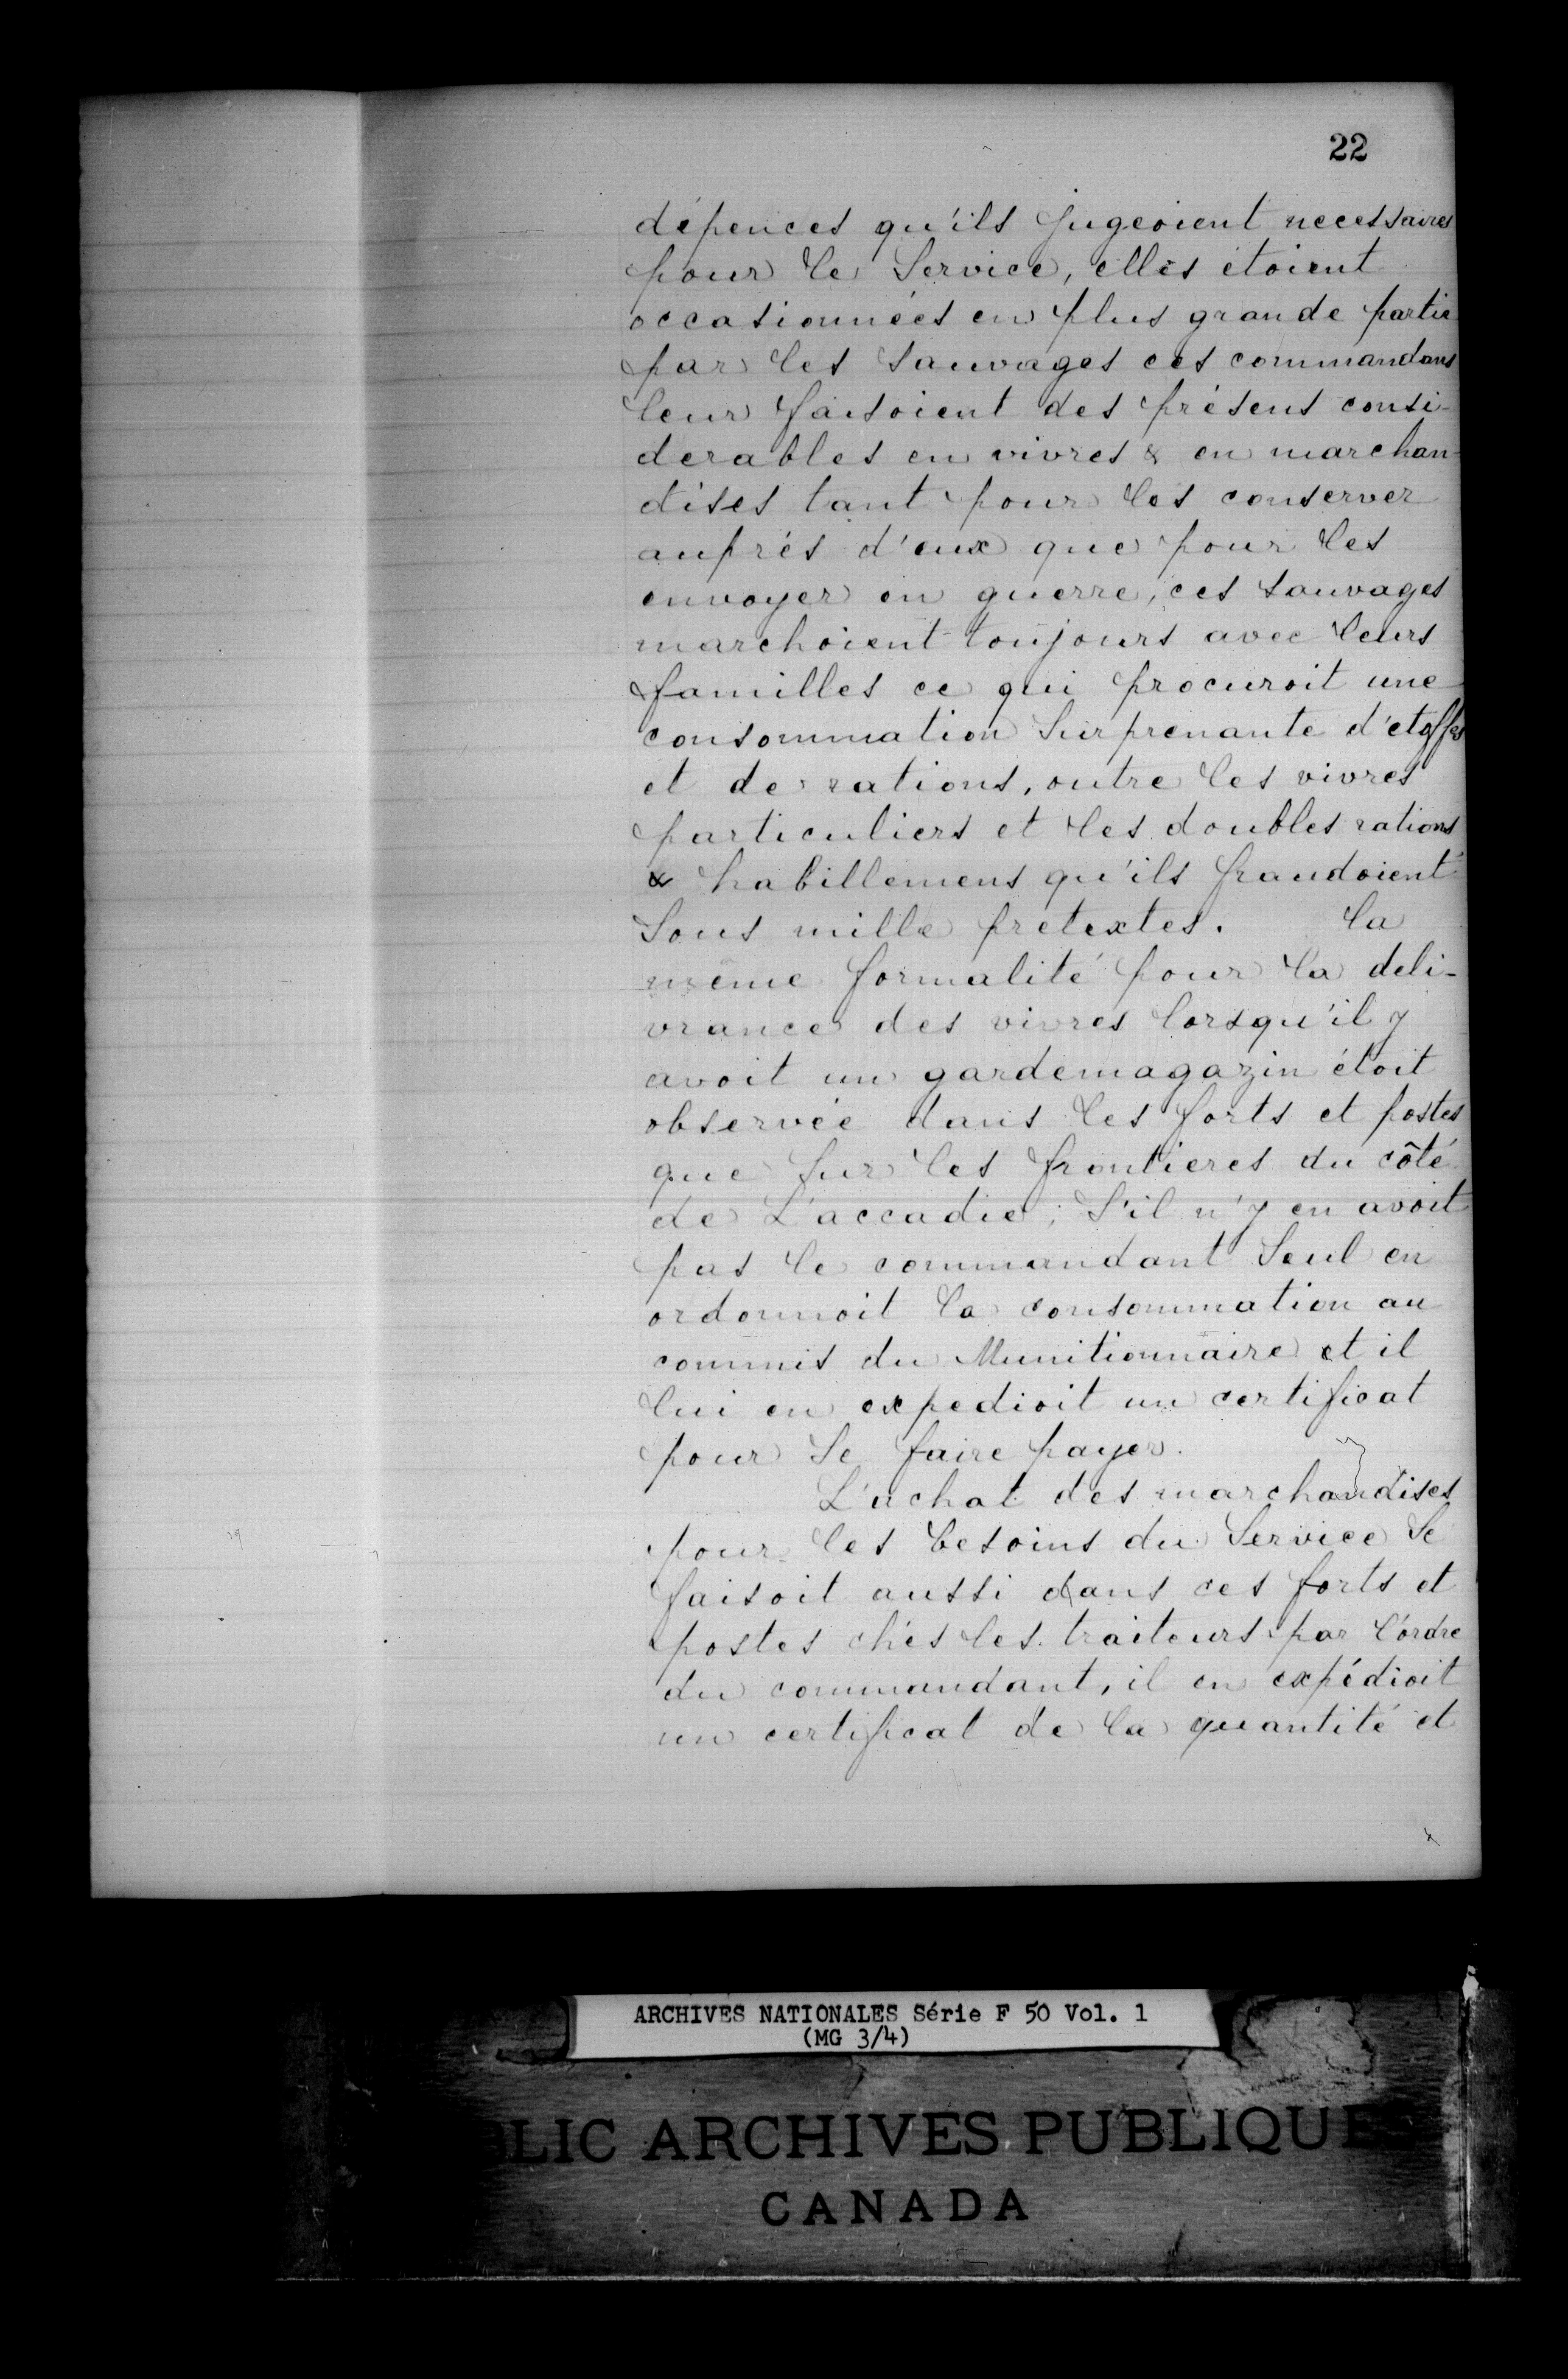 22
dépences qu'ils jugeoient necessaires
pour le Service, elles étoient
occasionnées en plus grande partie
par les sauvages ces commandans
leur faisoient des présens consi-
derables en vivres & en marchan-
dises tant pour les conserver
auprés d'eux que pour les
envoyer en guerre, ces sauvages
marchoient toujours avec leurs
familles ce qui procuroit une
consommation Surprenante d'etoffes
et de rations, outre les vivres
particuliers et les doubles rations
& habillemens qu'ils fraudoient
Sous mille pretextes. la
même formalité pour la deli-
vrance des vivres lorsqu'il y
avoit un gardemagazin étoit
observée dans les forts et postes
que Sur les frontieres du côté
de L'accadie; S'il n'y en avoit
pas le commandant Seul en
ordonnoit la consommation au
commis du Munitionnaire et il
lui en expedioit un certificat
pour Se faire payer.
L'achat des marchandises
pour les besoins du Service Se
faisoit aussi dans ces forts et
postes chés les traiteurs par l'ordre
du commandant, il en expédioit
un certificat de la quantité et
ARCHIVES NATIONALES Série F 50 Vol. 1
(MG 3/4)
BLIC ARCHIVES PUBLIQUES
CANADA